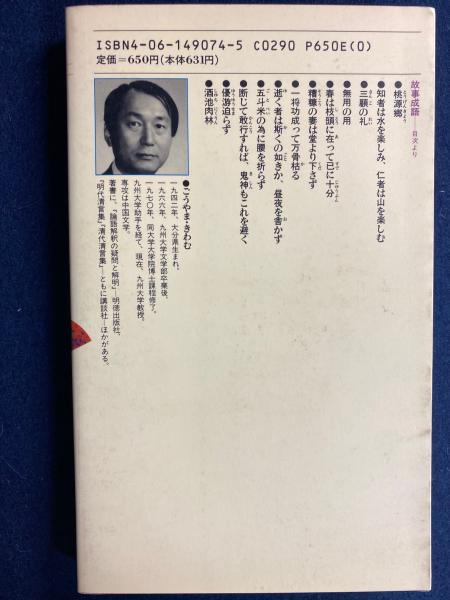 ISBN4-06-149074-5 C0290 P650E(0)
定価=650円(本体631円)
故事成語──目次より
●桃源郷
●知者は水を楽しみ、仁者は山を楽しむ
●三顧の礼
●無用の用
●春は枝頭に在って已に十分
●糟糠の妻は堂より下さず
●一将功成って万骨枯る
●逝く者は斯くの如きか、昼夜を舎かず
●五斗米の為に腰を折らず
●断じて敢行すれば、鬼神もこれを避く
●優游迫らず
●酒池肉林
●ごうやま・きわむ
一九四二年、大分県生まれ。
一九六六年、九州大学文学部卒業後、
一九七〇年、同大学大学院博士課程修了。
九州大学助手を経て、現在、九州大学教授。
専攻は中国文学。
著書に、『論語解釈の疑問と解明』─明徳出版社、
『明代清言集』『清代清言集』─ともに講談社─ほかがある。